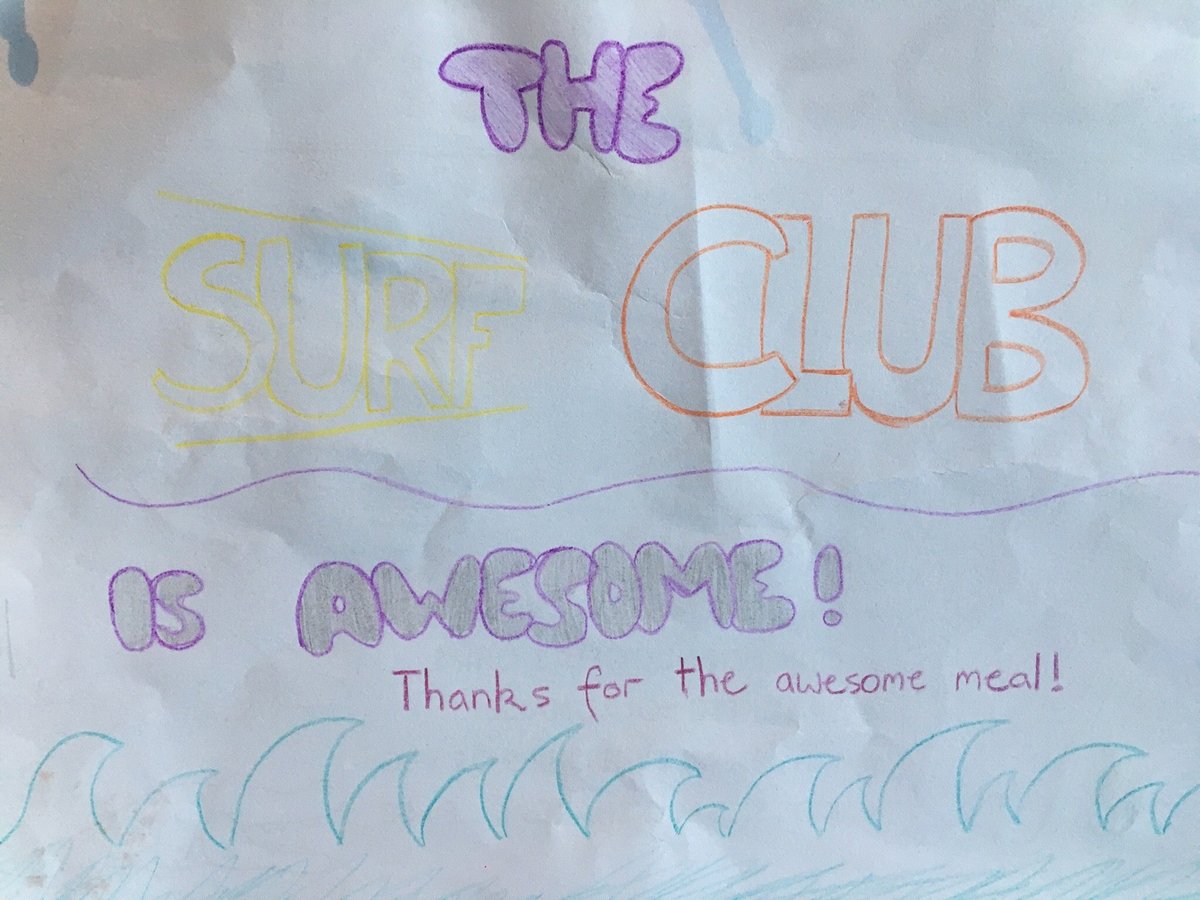 THE
SURF CLUB
IS AWESOME!
Thanks for the awesome meal!